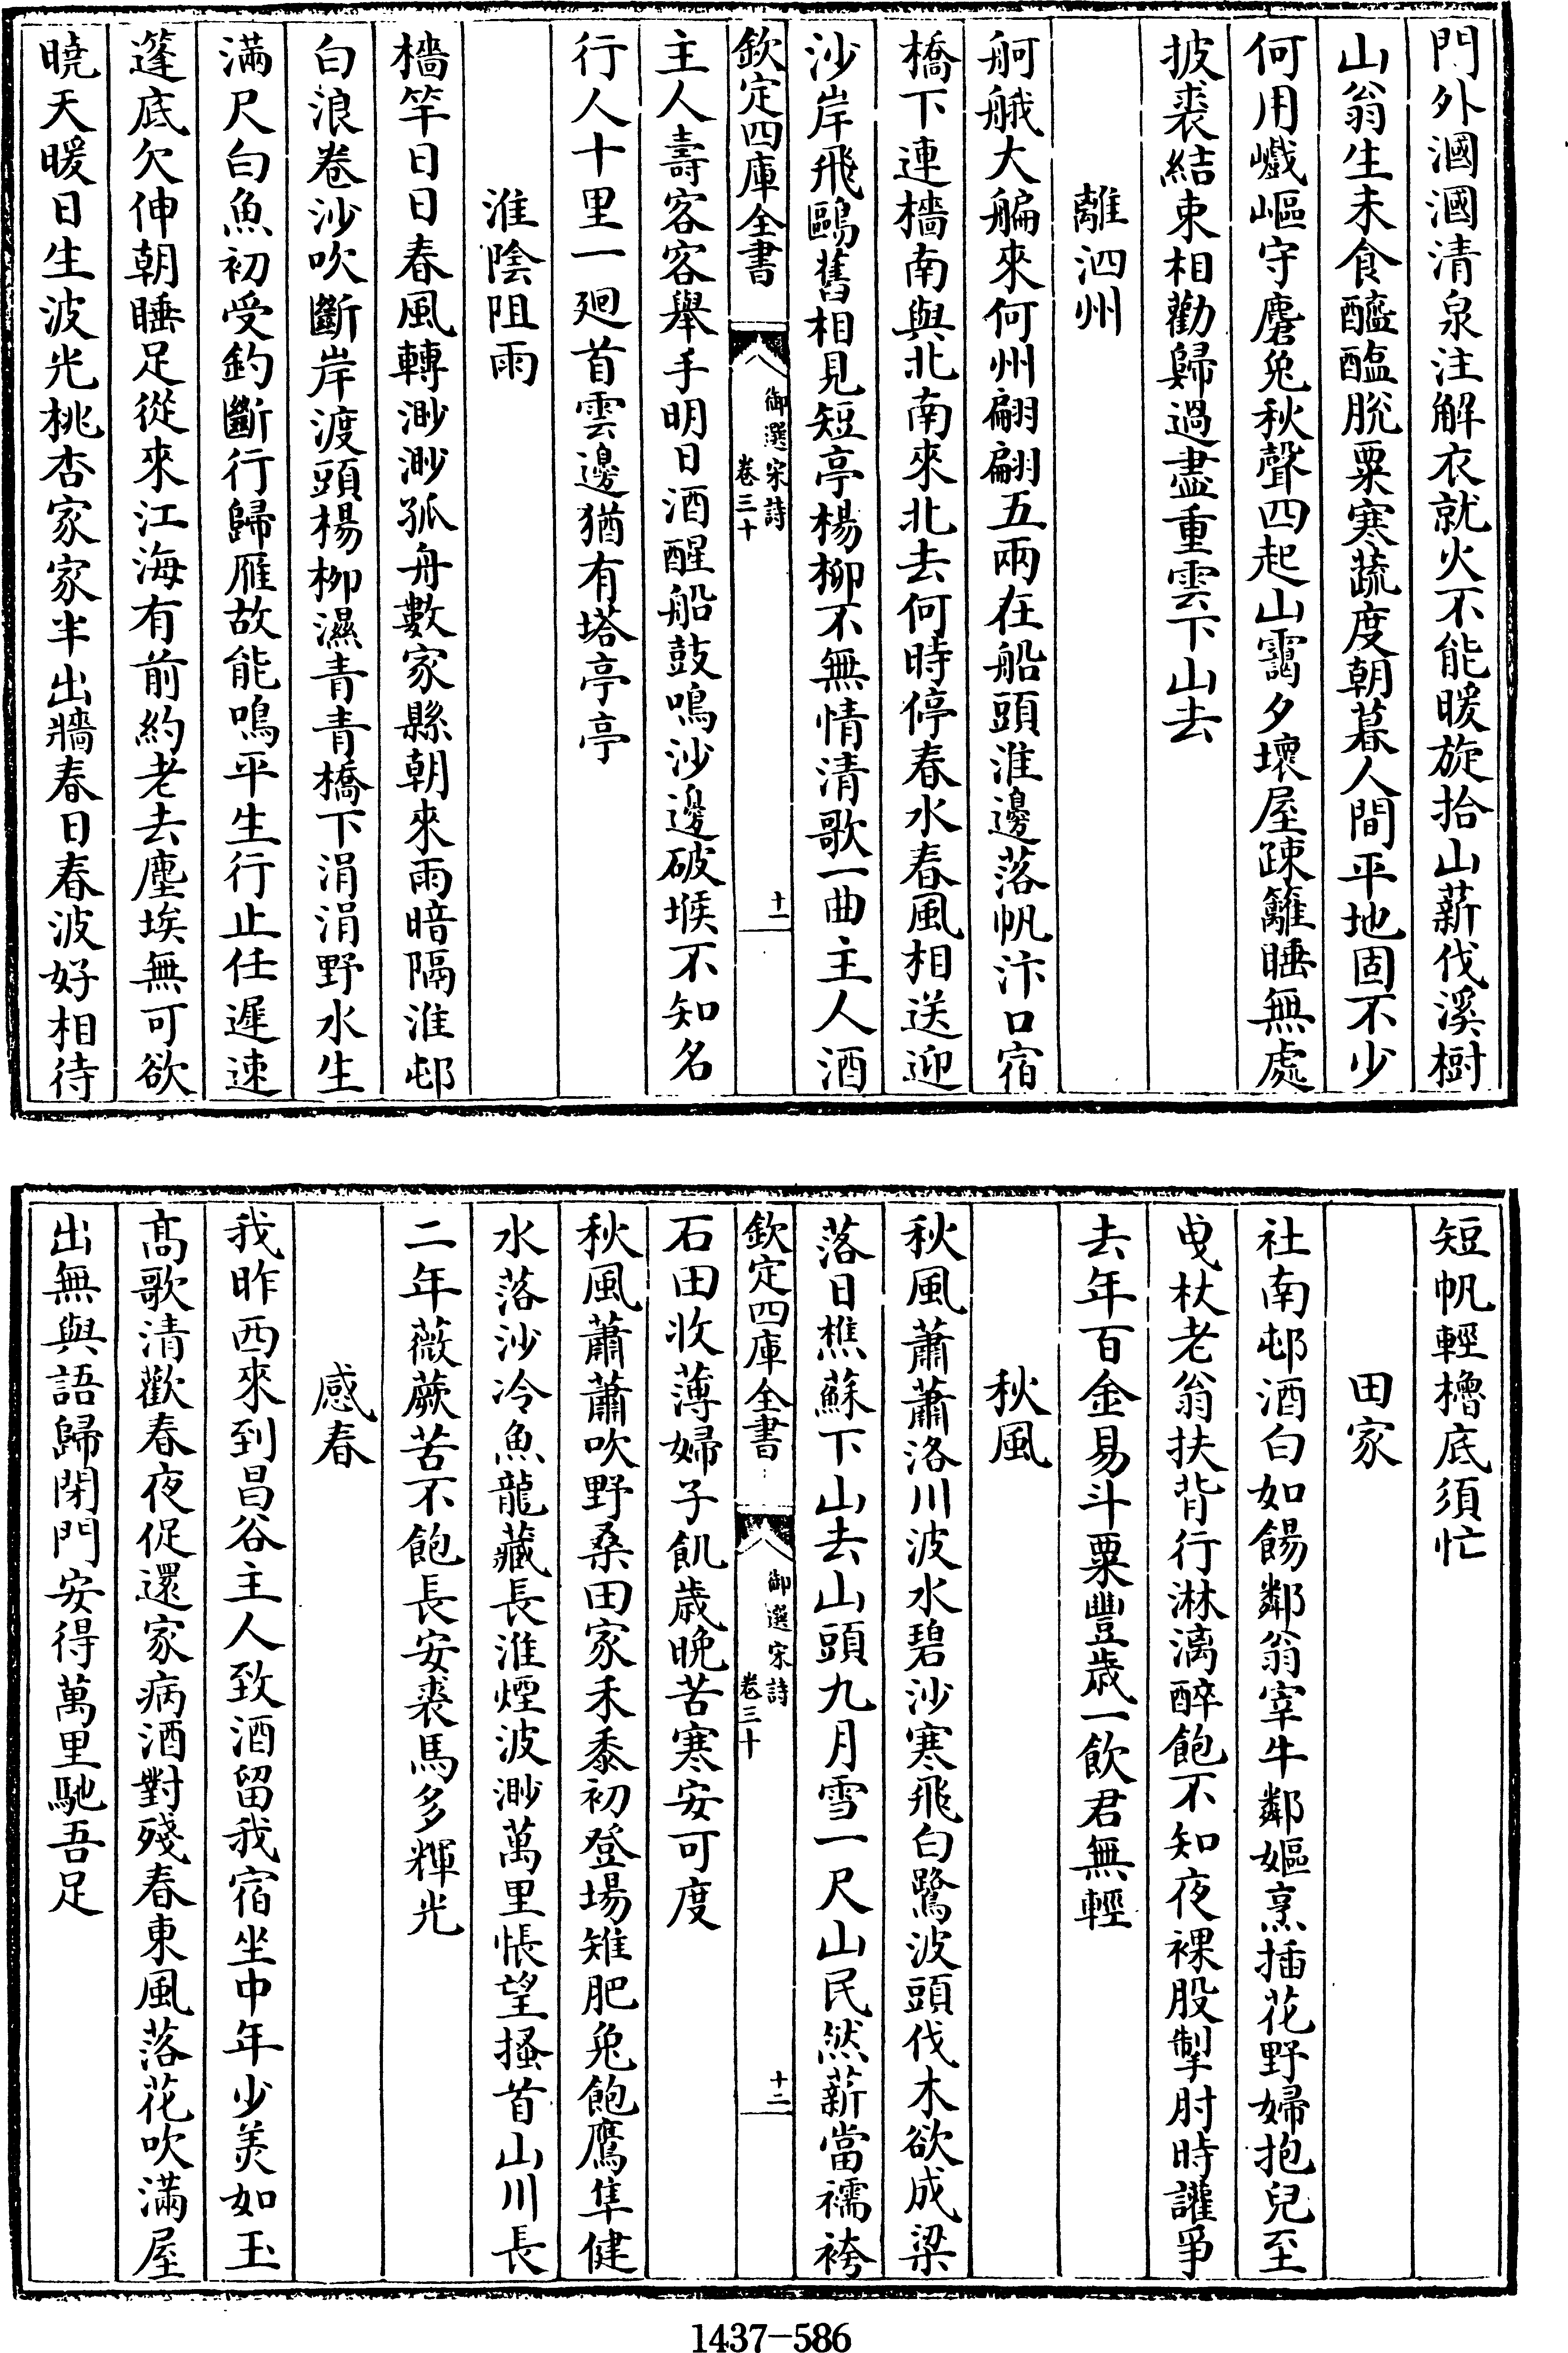 門外㶁㶁清泉注解衣就火不能暖旋拾山薪伐溪樹
山翁生未食醯醢脫粟寒蔬度朝暮人間平地固不少
何用巇嶇守麏兔秋聲四起山靄夕壞屋疎籬睡無處
披裘結束相勸歸過盡重雲下山去
離泗州
舸艤大艑來何州翩翩五兩在船頭淮邊落帆汴口宿
橋下連檣南與北南來北去何時停春水春風相送迎
沙岸飛鷗舊相見短亭楊柳不無情清歌一曲主人酒
欽定四庫全書
御選宋詩
卷三十
十一
主人壽客客舉手明日酒醒船鼓鳴沙邊破堠不知名
行人十里一廻首雲邊猶有塔亭亭
淮陰阻雨
檣竿日日春風轉渺渺孤舟數家縣朝來雨暗隔淮邨
白浪卷沙吹斷岸渡頭楊柳濕青青橋下涓涓野水生
滿尺白魚初受釣斷行歸雁故能鳴平生行止任遲速
篷底欠伸朝睡足從來江海有前約老去塵埃無可欲
曉天暖日生波光桃杏家家半出牆春日春波好相待
短帆輕櫓底須忙
田家
社南邨酒白如餳鄰翁宰牛鄰嫗烹插花野婦抱兒至
曳杖老翁扶背行淋漓醉飽不知夜裸股掣肘時讙爭
去年百金易斗粟豐歲一飲君無輕
秋風
秋風蕭蕭洛川波水碧沙寒飛白鷺波頭伐木欲成梁
落日樵蘇下山去山頭九月雪一尺山民然薪當襦袴
欽定四庫全書
御選宋詩
卷三十
十二
石田收薄婦子飢歲晚苦寒安可度
秋風蕭蕭吹野桑田家禾黍初登場雉肥兔飽鷹隼健
水落沙冷魚龍藏長淮煙波渺萬里悵望搔首山川長
二年薇蕨苦不飽長安裘馬多輝光
感春
我昨西來到昌谷主人致酒留我宿坐中年少美如玉
髙歌清歡春夜促還家病酒對殘春東風落花吹滿屋
出無與語歸閉門安得萬里馳吾足
1437-586